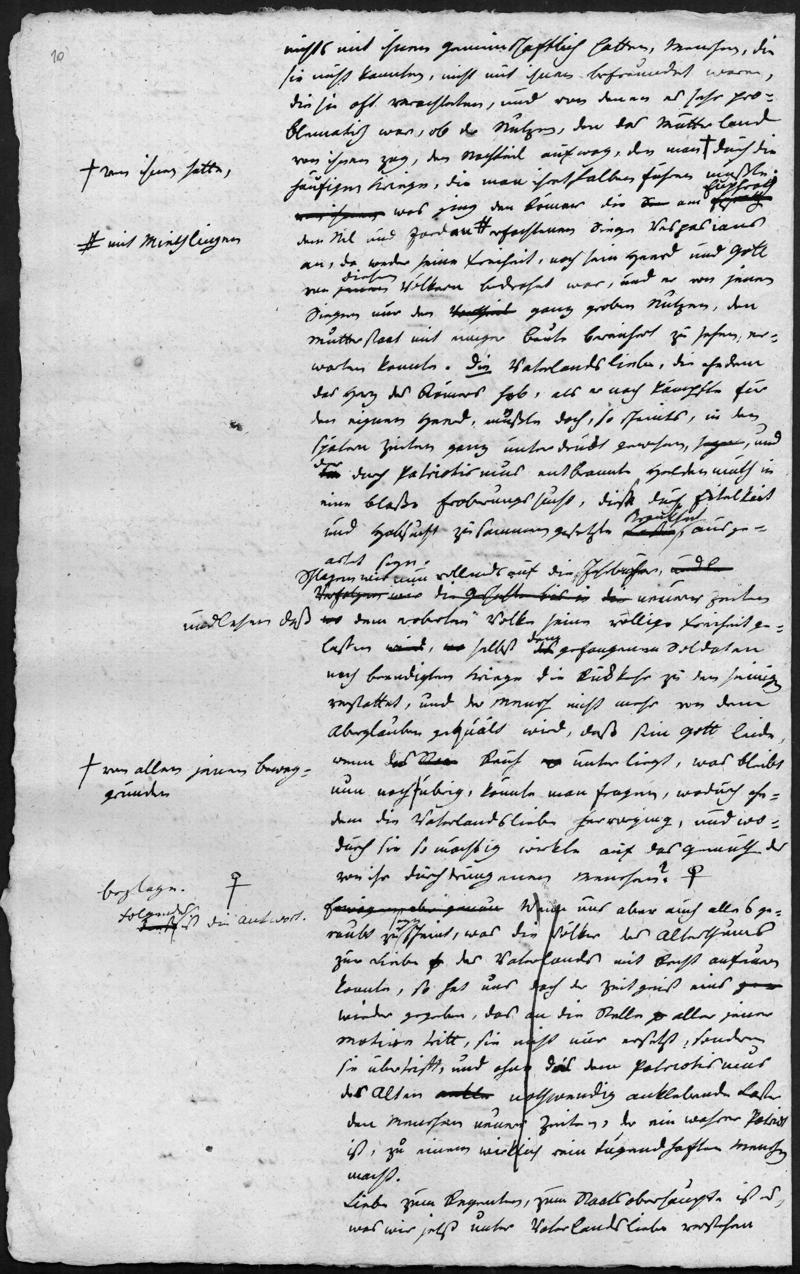 10
nichts mit ihnen gemeinschaftlich hatten, Menschen, die
sie nicht kannten, nicht mit ihnen befreundet waren,
die sie oft verachteten, und von denen es sehr pro-
blematisch war, ob der Nutzen, den das Mutterland
von ihnen zog, den Nachtheil aufwog, den man † durch die
† von ihnen hatte,
häufigen Kriege, die man ihrethalben führen mußte.
was ging den Römer die am Euphrat
dem Nil und Jordan # erfochtenen Siege Vespasians
# mit Miethlingen
an, da weder seine Freiheit, noch sein Heerd und Gott
von diesen Völkern bedroht war, und er von jenen
Siegen nur den ganz groben Nutzen, den
Mutterstaat mit einiger Beute bereichert zu sehen, er-
warten konnte. Die Vaterlandsliebe, die ehedem
das Herz des Römers hob, als er noch kämpfte für
den eignen Heerd, mußte doch, so scheints, in den
spätern Zeiten ganz unterdrückt gewesen, und
der durch Patriotismus entbrannte Heldenmuth in
eine bloße Eroberungssucht, durch Eitelkeit
und Habsucht zusammengesetzte ausge-
artet seyn.
Schlagen wir nun vollends auf die Jahrbücher
neuerer Zeiten
und lesen daß dem eroberten Volke seine völlige Freiheit ge-
lassen, selbst den gefangenen Soldaten
nach beendigtem Kriege die Rückkehr zu den seinigen
verstattet, und der Mensch nicht mehr von dem
Aberglauben gequält wird, daß sein Gott leide,
wenn das Reich unterliegt, was bleibt
† von allen jenen Beweg-
gründen
nun noch † übrig, könnte man fragen, wodurch ehe-
dem die Vaterlandsliebe hervorging, und wo-
durch sie so mächtig wirkte auf das Gemüth des
von ihr durchdrungenen Menschen? ♀
♀
Folgendes ist die Antwort.
Wenn uns aber auch alles ge-
raubt zu seyn scheint, was die Völker des Alterthums
zur Liebe des Vaterlands mit Recht anfeuern
konnte, so hat uns doch der Zeitgeist eins
wieder gegeben, das an die Stelle aller jener
Motive tritt, sie nicht nur ersetzt, sondern
sie übertrifft, und ohne die dem Patriotismus
der Alten nothwendig anklebende Laster
den Menschen neuerer Zeiten, der ein wahrer Patriot
ist, zu einem wirklich rein tugendhaften Menschen
macht.
Liebe zum Regenten, zum Staatsoberhaupte ist es,
was wir jetzt unter Vaterlandsliebe verstehen